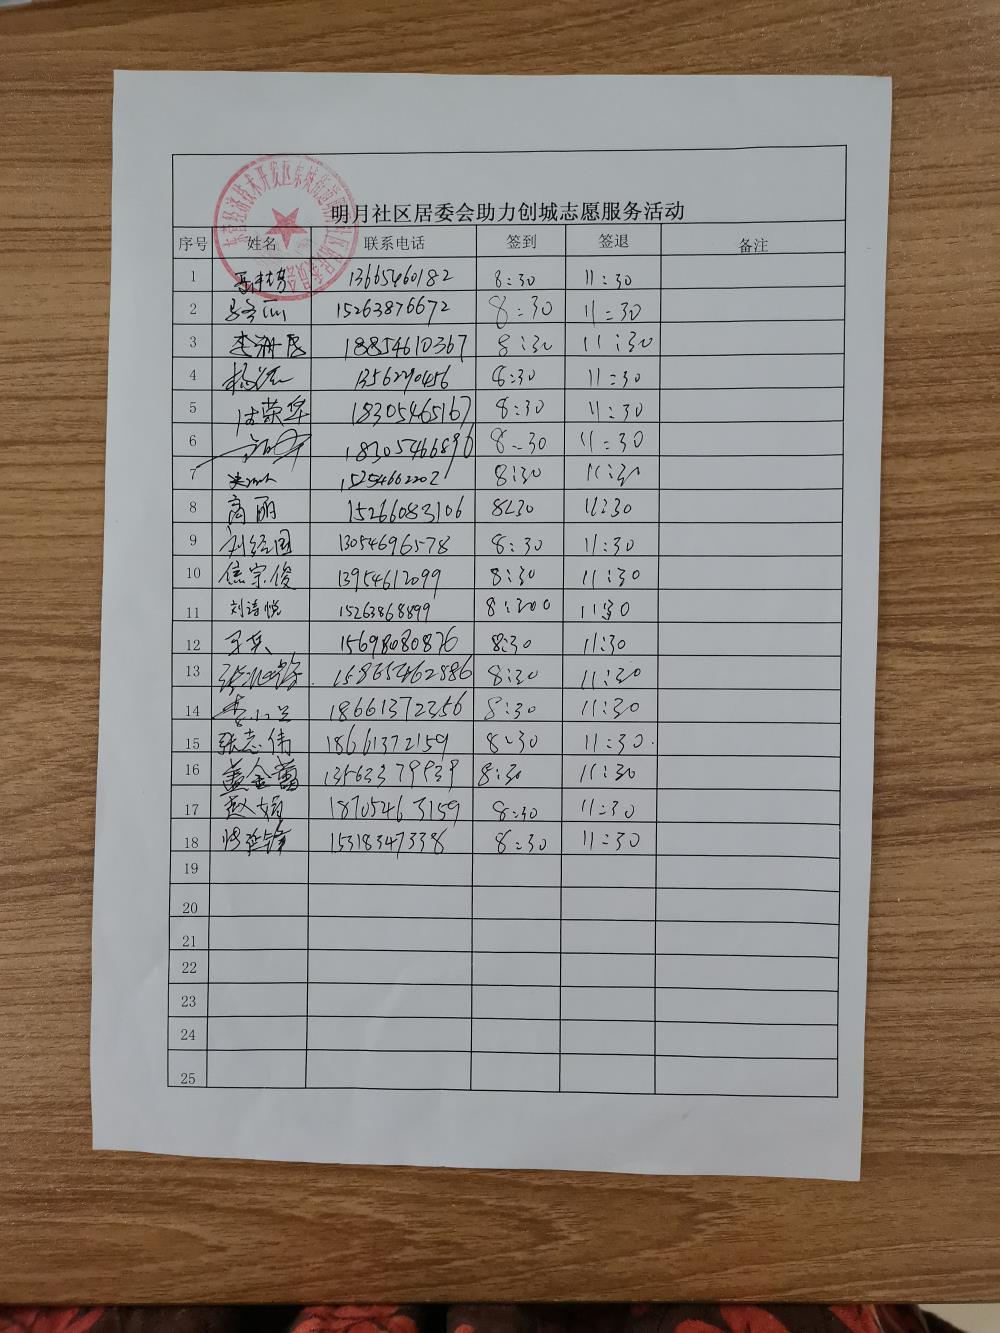 明月社区居委会助力创城志愿服务活动
序号 姓名 联系电话 签到 签退 备注
1 13665460182 8:30 11:30
2 15263876672 8:30 11:30
3 18854610367 8:30 11:30
4 1356290456 8:30 11:30
5 荣华 18305465167 8:30 11:30
6 18305466896 8:30 11:30
7 15254662202 8:30 11:30
8 高丽 15266083106 8:30 11:30
9 刘经国 13054696578 8:30 11:30
10 焦宗俊 13954612099 8:30 11:30
11 刘诗悦 15263868899 8:300 11:30
12 15698080876 8:30 11:30
13 15865462886 8:30 11:30
14 18661372356 8:30 11:30
15 张志伟 18661372159 8:30 11:30.
16 盖金蕾 13563379939 8:30 11:30
17 18705463159 8:30 11:30
18 15318347338 8:30 11:30
19
20
21
22
23
24
25